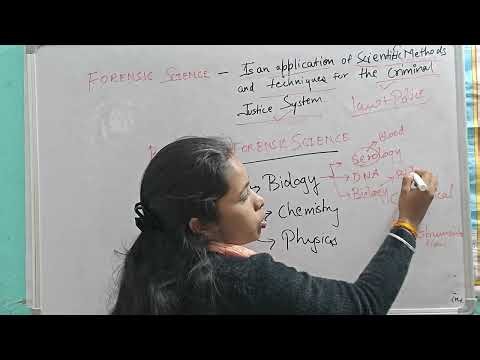 FORENSIC SCIENCE – Is an application of Scientific Methods
and techniques for the Criminal
Justice System. Law + Police
FORENSIC SCIENCE
Blood
Serology
Biology → DNA
Biology
Chemistry
Physics